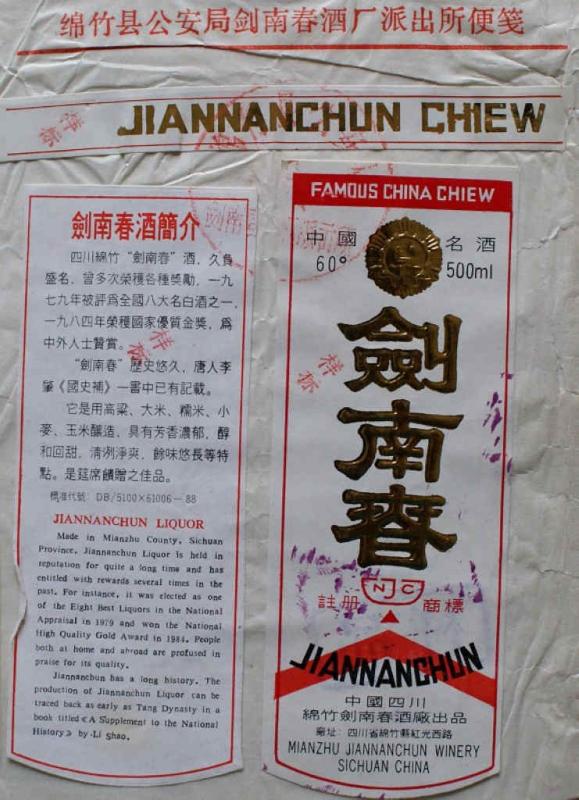 绵竹县公安局剑南春酒厂派出所便笺
JIANNANCHUN CHIEW
样标
劍南春酒簡介
四川綿竹“劍南春”酒，久負
盛名，曾多次榮獲各種獎勵，一九
七九年被評爲全國八大名白酒之一，
一九八四年榮獲國家優質金獎，爲
中外人士贊賞。
“劍南春”歷史悠久，唐人李
肇《國史補》一書中已有記載。
它是用高粱、大米、糯米、小
麥、玉米釀造、具有芳香濃郁，醇
和回甜，清洌淨爽，餘味悠長等特
點。是筵席饋贈之佳品。
標准代號：DB/5100×61006—88
JIANNANCHUN LIQUOR
Made in Mianzhu County, Sichuan
Province, Jiannanchun Liquor is held in
reputation for quite a long time and has
entitled with rewards several times in the
past. For instance, it was elected as one
of the Eight Best Liquors in the National
Appraisal in 1979 and won the National
High Quality Gold Award in 1984. People
both at home and abroad are profused in
praise for its quality.
Jiannanchun has a long history. The
production of Jiannanchun Liquor can be
traced back as early as Tang Dynasty in a
book titled《A Supplement to the National
History》by Li Shao.
样标
FAMOUS CHINA CHIEW
中國 名酒
60° 500ml
劍南春
样标
NJC
註册 商標
JIANNANCHUN
中國四川
綿竹劍南春酒廠出品
廠址：四川省綿竹縣紅光西路
MIANZHU JIANNANCHUN WINERY
SICHUAN CHINA